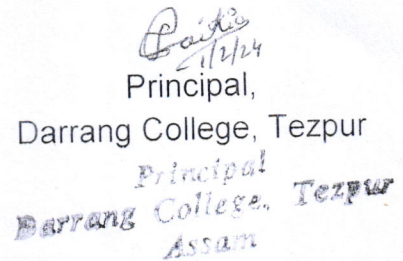 1/2/24
Principal,
Darrang College, Tezpur
Principal
Darrang College, Tezpur
Assam